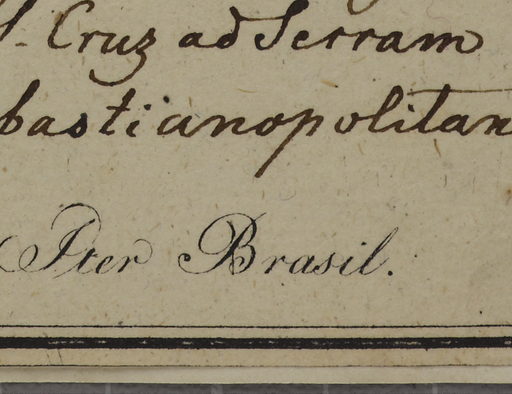 S. Cruz ad Serram
bastianopolitan
Iter Brasil.